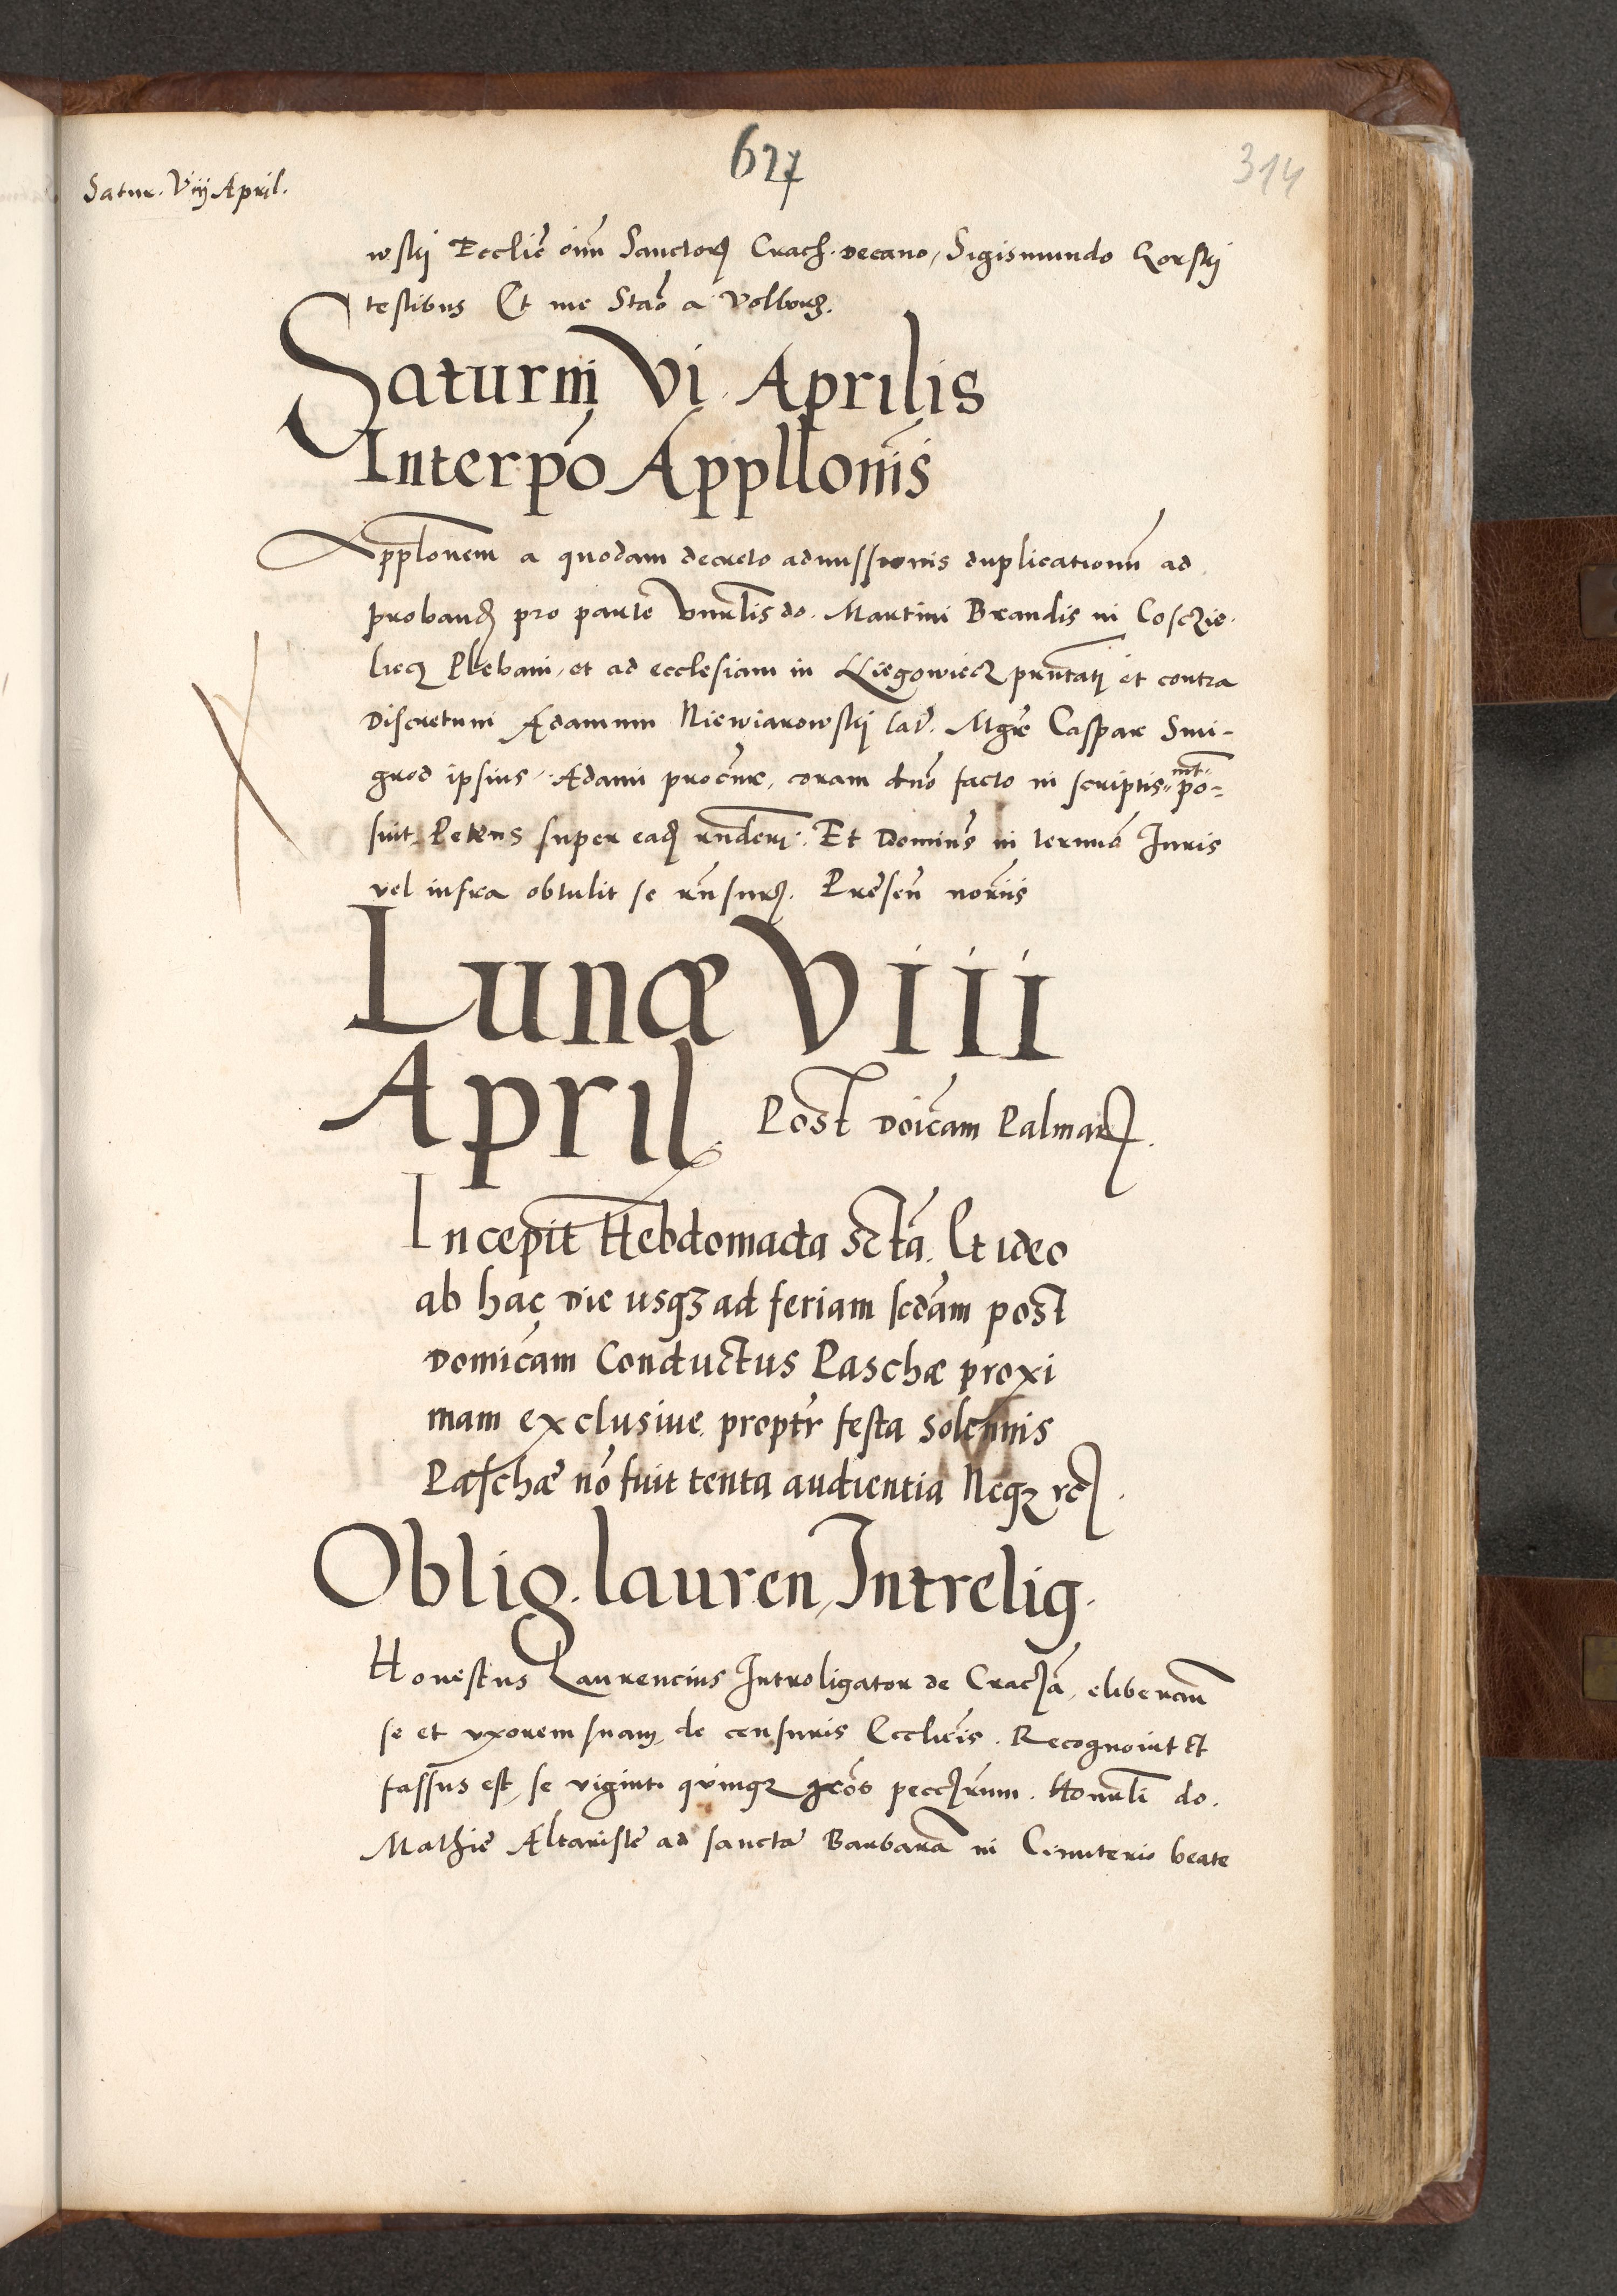 627
314
Satur. Viij April.
wskij Ecclie oim Sanctorꝝ Crach. decano, Sigismundo Gorskij
testibus Et me Stao a Volborꝫ.
Saturni Vi. Aprilis
Interpo Appllonis
Applonem a quodam decreto admissionis duplicationum ad
probandꝫ pro parte Vnrlis do. Martini Brandis in Cosczie-
liecz Plebani, et ad ecclesiam in Lliegowiecz pruntati et contra
Discretum Adamum Niewiarowskij lat. Mgr Caspar Smi-
grod ipsius Adami procur, coram dno facto in scriptis int po-
suit. Petens super eadꝫ rnderi. Et Dominus in termio Juris
vel infra obtulit se rnsurꝫ. Presen noriis
Lunæ Viii
April. Post Doicam Palmarꝝ.
Incepit Hebdomada scta. Et ideo
ab hac die usqꝫ ad feriam scdam post
Domicam Conductus Paschæ proxi
mam exclusive propter festa solennis
Paschæ no fuit tenta audientia Neqꝫ rcꝫ.
Oblig. lauren, Introlig.
Honestus Laurencius Introligator de Crac̃ia, eliberan
se et vxorem suam de censuris Ecclicis. Recognovit Et
fassus est, se viginti quinqꝫ gros pecc̃rum. Honrli do.
Mathie Altariste ad sancta Barbara in Cimiterio beate